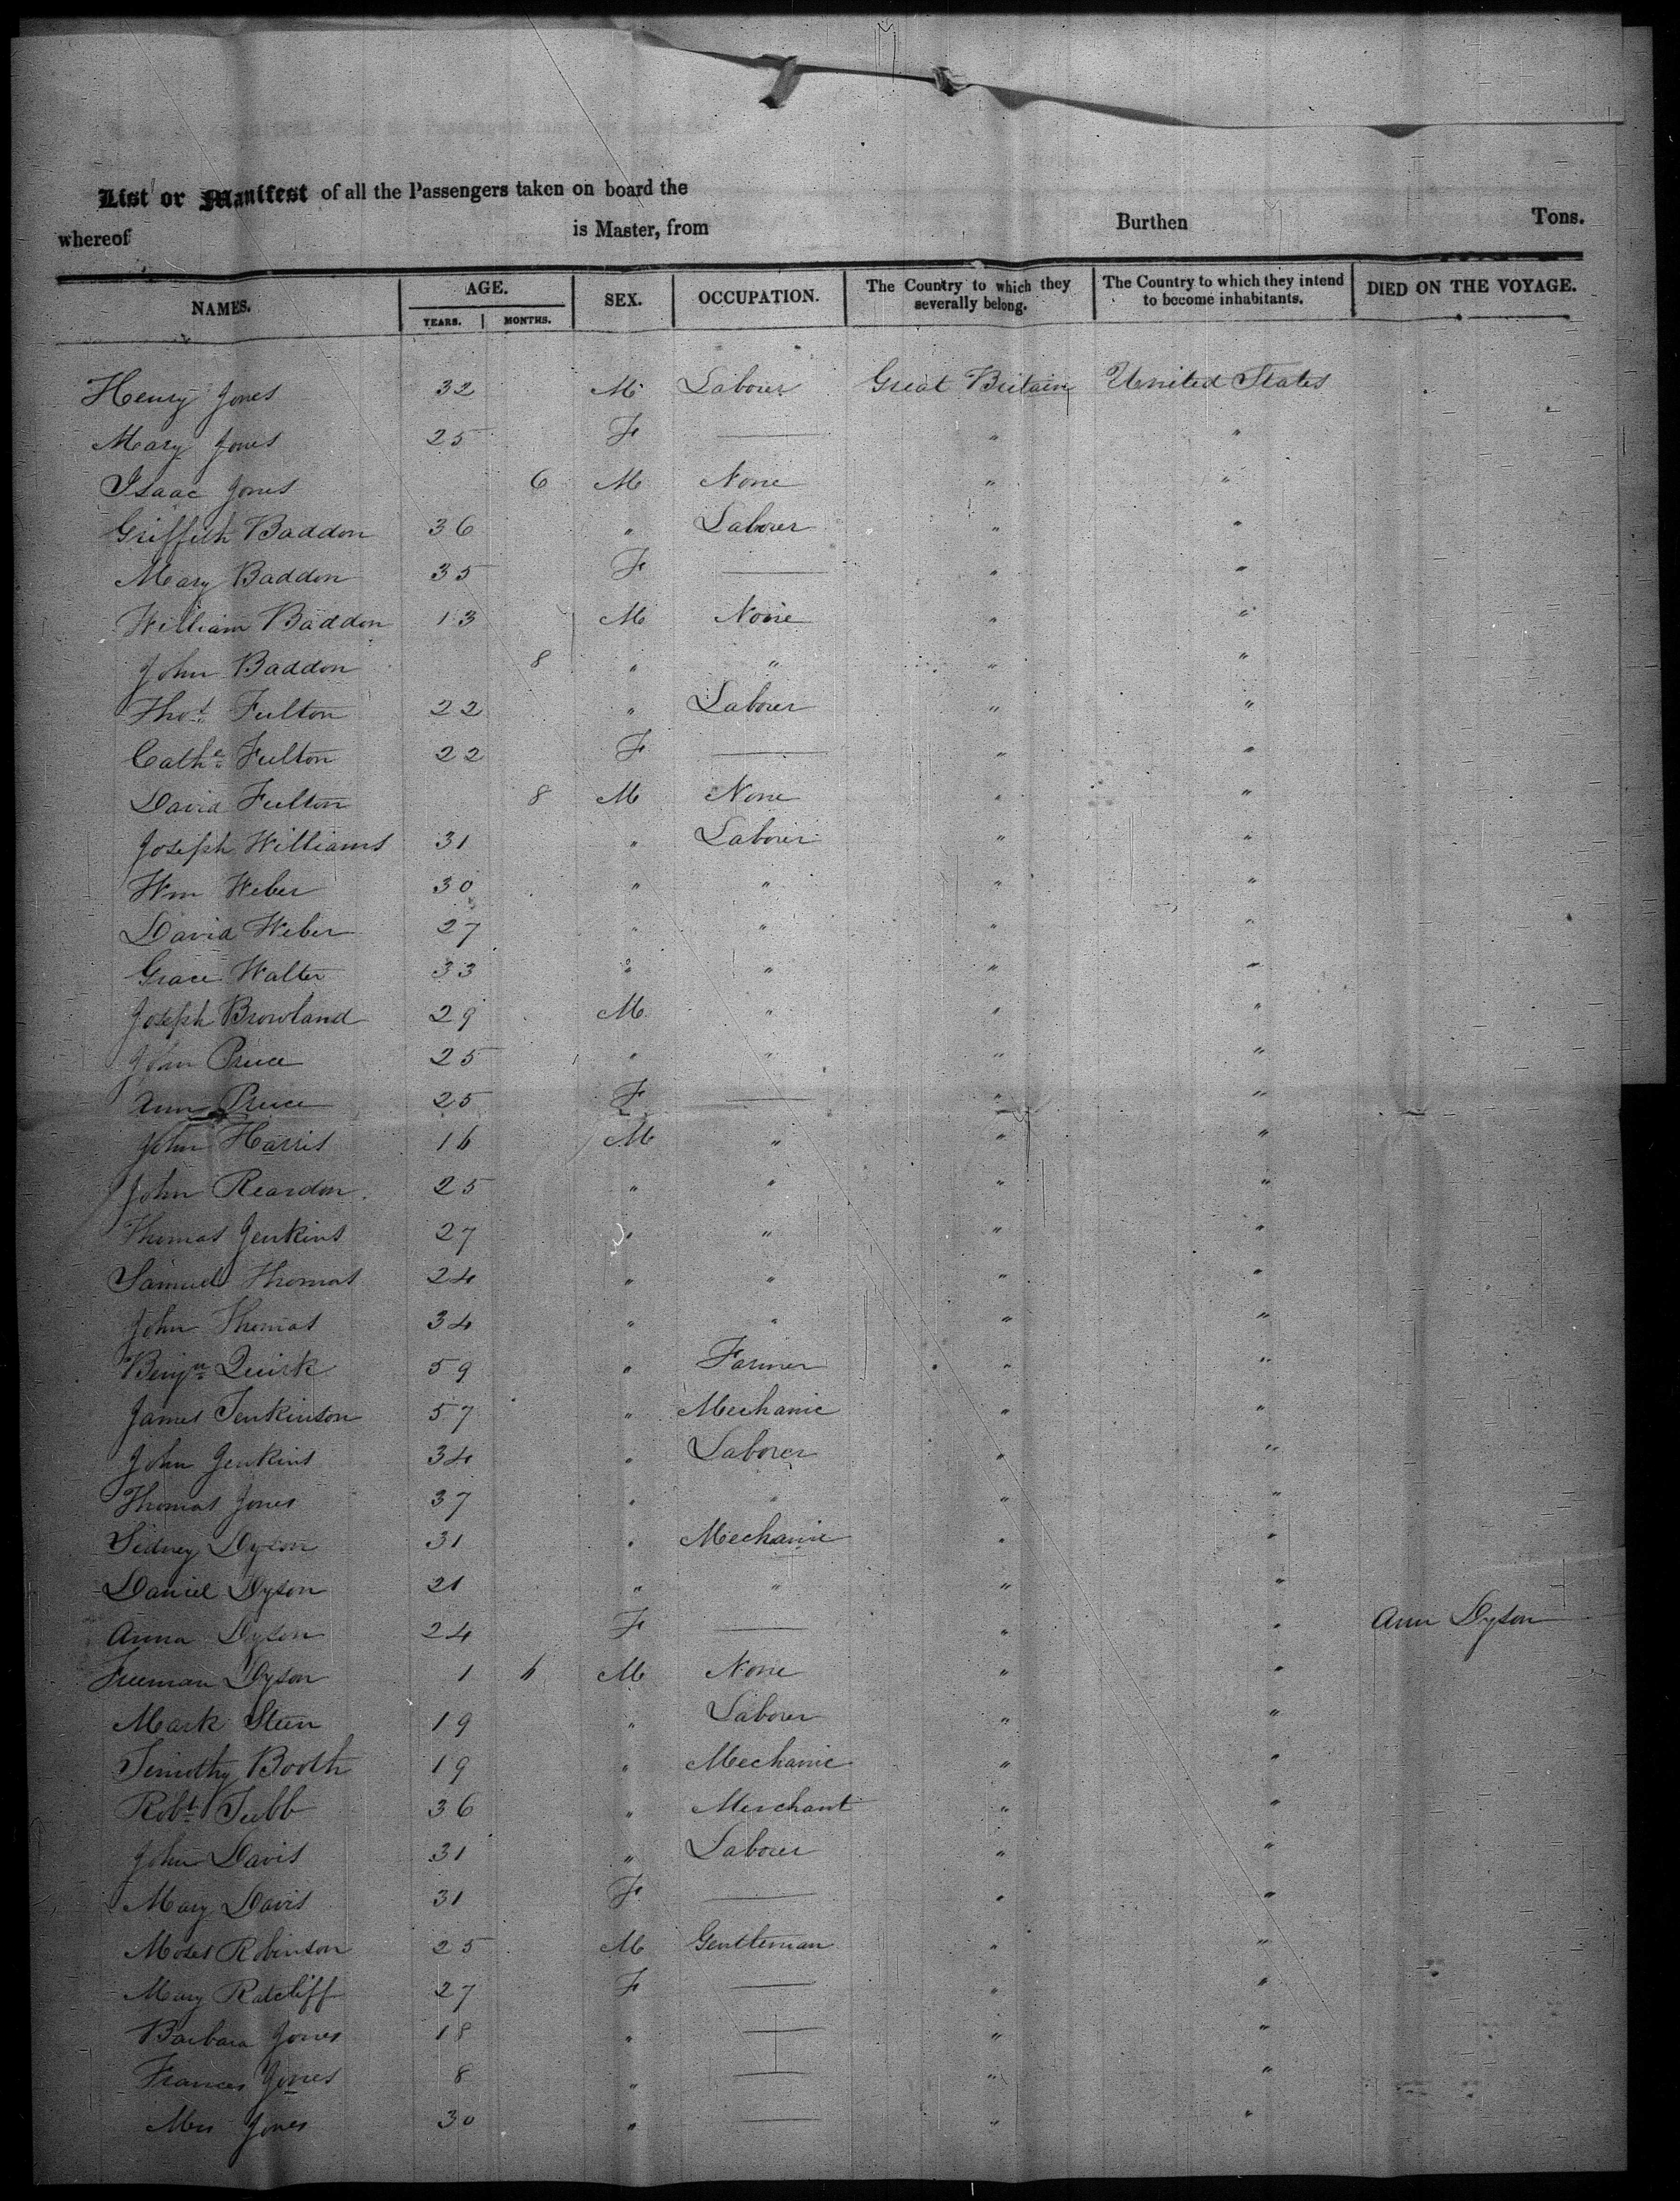 List or Manifest of all the Passengers taken on board the
whereof is Master, from Burthen Tons.
NAMES. AGE. SEX. OCCUPATION. The Country to which they severally belong. The Country to which they intend to become inhabitants. DIED ON THE VOYAGE.
YEARS. MONTHS.
Henry Jones 32 M Laborer Great Britain United States
Mary Jones 25 F — " "
Isaac Jones 6 M None " "
Griffith Baddon 36 " Laborer " "
Mary Baddon 35 F — " "
William Baddon 13 M None " "
John Baddon 8 " " " "
Thos. Fulton 22 " Laborer " "
Cathe. Fulton 22 F — " "
David Fulton 8 M None " "
Joseph Williams 31 " Laborer " "
Wm Weber 30 " " " "
David Weber 27 " " " "
Grace Walter 33 " " " "
Joseph Browland 29 M " " "
John Preece 25 " " " "
Ann Preece 25 F — " "
John Harris 16 M " " "
John Reardon 25 " " " "
Thomas Jenkins 27 " " " "
Samuel Thomas 24 " " " "
John Thomas 34 " " " "
Benjn. Quirk 59 " Farmer " "
James Jenkinson 57 " Mechanic " "
John Jenkins 34 " Laborer " "
Thomas Jones 37 " " " "
Sidney Dyson 31 " Mechanic " "
Daniel Dyson 21 " " " "
Anna Dyson 24 F — " " Ann Dyson
Freeman Dyson 1 6 M None " "
Mark Steen 19 " Laborer " "
Timothy Booth 19 " Mechanic " "
Robt. Tubb 36 " Merchant " "
John Davis 31 " Laborer " "
Mary Davis 31 F — " "
Moses Robinson 25 M Gentleman " "
Mary Ratcliff 27 F — " "
Barbara Jones 18 " — " "
Frances Jones 8 " — " "
Mrs Jones 30 " — " "